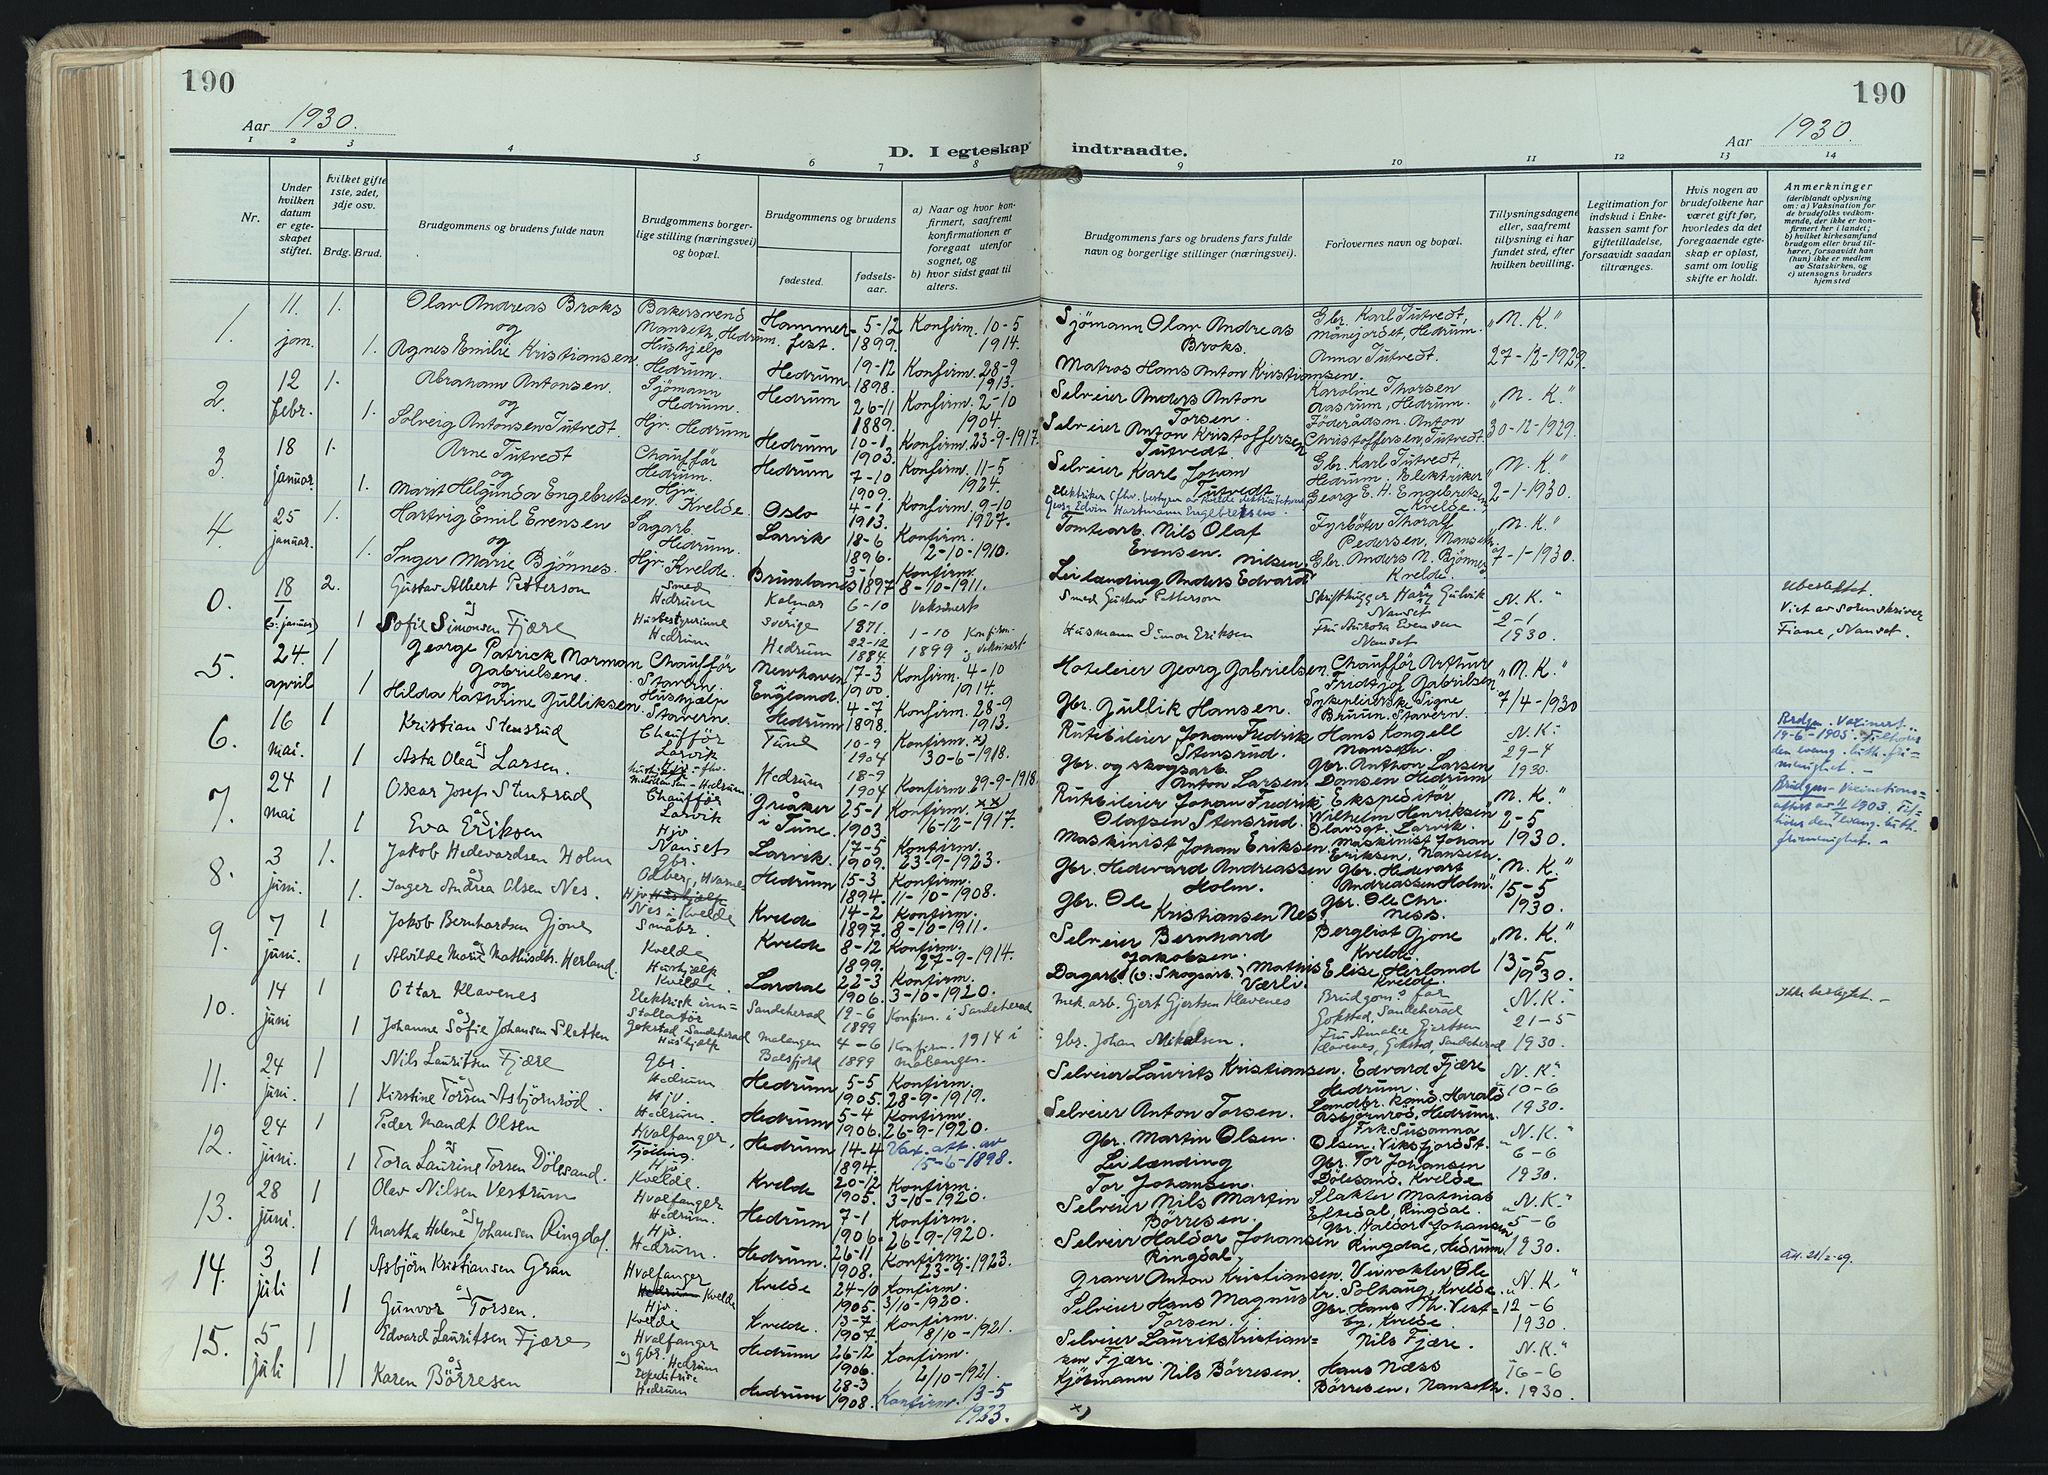 190
190
Aar 1930.
Aar 1930.
D. I egteskap indtraadte.
1 2 3 4 5 6 7 8 9 10 11 12 13 14
Nr.
Under hvilken datum er egteskapet stiftet.
Hvilket gifte 1ste, 2det, 3dje osv.
Brdg. Brud.
Brudgommens og brudens fulde navn
Brudgommens borgerlige stilling (næringsvei) og bopæl.
Brudgommens og brudens
fødested.
fødselsaar.
a) Naar og hvor konfirmert, saafremt konfirmationen er foregaat utenfor sognet, og
b) hvor sidst gaat til alters.
Brudgommens fars og brudens fars fulde navn og borgerlige stillinger (næringsvei).
Forlovernes navn og bopæl.
Tillysningsdagene eller, saafremt tillysning ei har fundet sted, efter hvilken bevilling.
Legitimation for indskud i Enkekassen samt for giftetilladelse, forsaavidt saadan tiltrænges.
Hvis nogen av brudefolkene har været gift før, hvorledes da det foregaaende egteskap er opløst, samt om lovlig skifte er holdt.
Anmerkninger
(deriblandt oplysning om: a) Vaksination for de brudefolks vedkommende, der ikke er konfirmert her i landet;
b) hvilket kirkesamfund brudgom eller brud tilhører, forsaavidt han (hun) ikke er medlem av Statskirken, og
c) utensogns bruders hjemsted
1. 11. jan. 1. Olav Andreas Broks Bakersvend Nanseth, Hedrum. Hammerfest. 5-12 1899. Konfirm. 10-5 1914. Sjömann Olav Andreas Broks. Gbr. Karl Tutvedt, Månejordet, Hedrum. „N. K."
og
1. Agnes Emilie Kristiansen. Hushjelp Hedrum. Hedrum 19-12 1898. Konfirm. 28-9 1913. Matros Hans Anton Kristiansen. Anna Tutvedt. 27-12-1929.
2. 12 febr. 1. Abraham Antonsen. Sjömann Hedrum. Hedrum 26-11 1889. Konfirm. 2-10 1904. Selveier Anders Anton Torsen. Karoline Thorsen Aasrum, Hedrum. „N. K."
og
1. Solveig Antonsen Tutvedt. Hjv. Hedrum Hedrum 10-1 1903. Konfirm. 23-9-1917. Selveier Anton Kristoffersen Tutvedt. Föderådsm. Anton Christoffersen, Tutvedt. 30-12-1929.
3. 18 januar. 1. Arne Tutvedt Chauffør Hedrum. Hedrum 7-10 1909. Konfirm. 11-5 1924. Selveier Karl Johan Tutvedt Gbr. Karl Tutvedt, Hedrum. „N. K."
og
1. Marit Helgunda Engebretsen Hjv. Kvelde. Oslo 4-1 1913. Konfirm. 9-10 1927. Georg Edvin Hartmann Engebretsen. Elektriker Georg E. H. Engebretsen Kvelde. 2-1-1930.
4. 25 januar. 1. Hartvig Emil Evensen Sagarb. Hedrum. Larvik 18-6 1896. Konfirm. 2-10-1910. Tomtearb. Nils Olaf Evensen. Fyrböter Thoralf Pedersen, Nanseth. „N. K."
og
1. Inger Marie Bjönnes. Hjv. Kvelde. Brunlanes 3-1 1897 Konfirm. 8-10-1911. Leilending Anders Edvard Nilsen Gbr. Anders N. Bjönnes Kvelde. 7-1-1930.
0. 18/1 (3: januar) 2. Gustav Albert Petterson Smed Hedrum Kalmar Sverige 6-10 1871. Vaksinert Smed Gustav Petterson Skrifthugger Harry Gulvik Nanset N. K." Ubeslektet.
og
1 Sofie Simonsen Fjære Husbestyrerinne Hedrum Hedrum 22-12 1884. 1-10 1899 Konfirm. Vaksinert Husmann Simon Eriksen Fru Aurora Evensen Nanset 2-1 1930. Viet av sorenskriver Fiane, Nanset.
5. 24. april 1 George Patrick Norman Gabrielsen. Chauffør Stavern. Newhaven i England. 7-3 1900. Konfirm. 4-10 1914. Hoteleier Georg Gabrielsen. Chauffør Arthur Fridtjof Gabrielsen „N. K."
og
1 Hilda Kathrine Gulliksen. Hushjelp Stavern. Hedrum 4-7 1898. Konfirm. 28-9 1913. Gbr. Gullik Hansen. Sykepleierske Signe Bruun. Stavern. 7/4-1930
6. 16 mai. 1 Kristian Stensrud Chauffør Larvik Tune 10-9 1904 Konfirm. x) 30-6-1918. Rutebileier Johan Fredrik Stensrud. Hans Kongell Nanseth. N. K. Brdgm. Vaxinert. 19-6-1905.
og
1 Asta Olea Larsen. Hedrum 18-9 1904 Konfirm. 29-9-1918. Gbr. og skogsarb. Anton Larsen. Gbr. Anthon Larsen Hedrum 29-4 1930.
7. 24 mai 1 Oscar Josef Stensrud Chauffør Larvik Greåker i Tune. 25-1 1903. Konfirm. xx) 16-12-1917. Rutebileier Johan Fredrik Olafsen Stensrud. Ekspeditør Wilhelm Henriksen Olavsgt. Larvik. „N. K."
og
1 Eva Eriksen Hjv. Nanset. Larvik. 7-5 1909. Konfirm. 23-9-1923. Maskinist Johan Eriksen. Maskinist Johan Eriksen, Nanseth. 2-5 1930.
8. 3 juni. 1. Jakob Hedevardsen Holm Gbr. Hedrum 15-3 1894. Konfirm. 11-10-1908. Gbr. Hedevard Andreassen Holm. Gbr. Hedevart Andreassen Holm. „N. K."
og
1. Inger Andrea Olsen Nes. Hjv. Hushjelp Nes i Kvelde Kvelde 14-2 1897. Konfirm. 8-10-1911. Gbr. Ole Kristiansen Nes. Gbr. Ole Chr. Ness. 15-5 1930.
9. 7 juni. 1 Jakob Bernhardsen Gjone Småbr. Kvelde Kvelde 8-12 1899. Konfirm. 27-9-1914. Selveier Bernhard Jakobsen. Bergliot Gjone Kvelde. „N. K."
og
1 Alvilde Marie Mathisdtr. Herland. Hushjelp Kvelde. Lardal 22-3 1906. Konfirm. 3-10-1920. Dagarb. (3: Skogsarb.) Mathis Værli. Elise Herland Kvelde. 13-5 1930.
10. 14 juni 1 Ottar Klavenes Elektrisk innstallatör Gokstad, Sandeherad Sandeherad 19-6 1899 Konfirm. i Sandeherad Mek. arb. Gjert Gjertsen Klavenes Brudgoms far Gokstad, Sandeherad N. K. Ikke beslegtet.
og
1 Johanne Sofie Johansen Sletten Hushjelp Malangen Balsfjord 4-6 1899 Konfirm. 1914 i Malangen. Gbr. Johan Mikalsen. Fru Amalie Gjertsen Klavenes, Gokstad, Sandeherad 21-5 1930.
11. 24 juni. 1 Nils Lauritsen Fjære Gbr. Hedrum Hedrum 5-5 1905. Konfirm. 28-9-1919. Selveier Laurits Kristiansen. Edvard Fjære Hedrum. N. K."
og
1 Kirstine Torsen Asbjörnröd. Hjv. Hedrum. Hedrum 5-4 1906. Konfirm. 26-9-1920. Selveier Anton Torsen. Harald Asbjörnröd, Hedrum. 10-6 1930.
12. 24 juni. 1 Peder Mandt Olsen Hvalfanger, Tjölling. Hedrum 14-4 1894. Vax. att. av 15-6-1898. Gbr. Martin Olsen. Frk. Susanna Olsen. „N. K."
og
1 Tora Laurine Torsen Dölesand. Hjv. Kvelde. Kvelde 20-12 1905. Konfirm. 3-10-1920. Leilending Tor Johansen. Gbr. Tor Johansen Dölesand, Kvelde 6-6 1930.
13. 28 juni. 1 Olav Nilsen Vestrum Hvalfanger Hedrum. Hedrum 7-1 1906. Konfirm. 26-9-1920. Selveier Nils Martin Börresen. Slakter Mathias Eftedal, Ringdal. „N. K."
og
1 Martha Helene Johansen Ringdal. Hjv. Hedrum. Hedrum. 26-11 1908. Konfirm. 23-9-1923. Selveier Haldor Johansen Ringdal. Gbr. Haldor Johansen Ringdal, Hedrum 5-6 1930.
14. 3 juli 1 Asbjörn Kristiansen Gran Hvalfanger Hedrum Kvelde Kvelde 24-10 1905. Konfirm. 3/10-1920. Graver Anton Kristiansen. Veivokter Ole Kr. Solhaug, Kvelde. „N. K."
og
1 Gunvor Torsen. Hjv. Kvelde Kvelde. 13-7 1907. Konfirm. 8/10-1921. Selveier Hans Magnus Torsen. Gbr. Hans Th. Vestby, Kvelde. 12-6 1930.
15. 5 juli 1 Edvard Lauritsen Fjære Hvalfanger og Gbr. Hedrum Hedrum 26-12 1906. Konfirm. 2/10-1921. Selveier Laurits Kristiansen Fjære. Nils Fjære. N. K."
og
1 Karen Börresen Expeditrise Hedrum Hedrum 28-3 1908. Konfirm. 13-5 1923. Kjöbmann Nils Börresen. Hans Næss Börresen, Nanseth. 16-6 1930.
x)